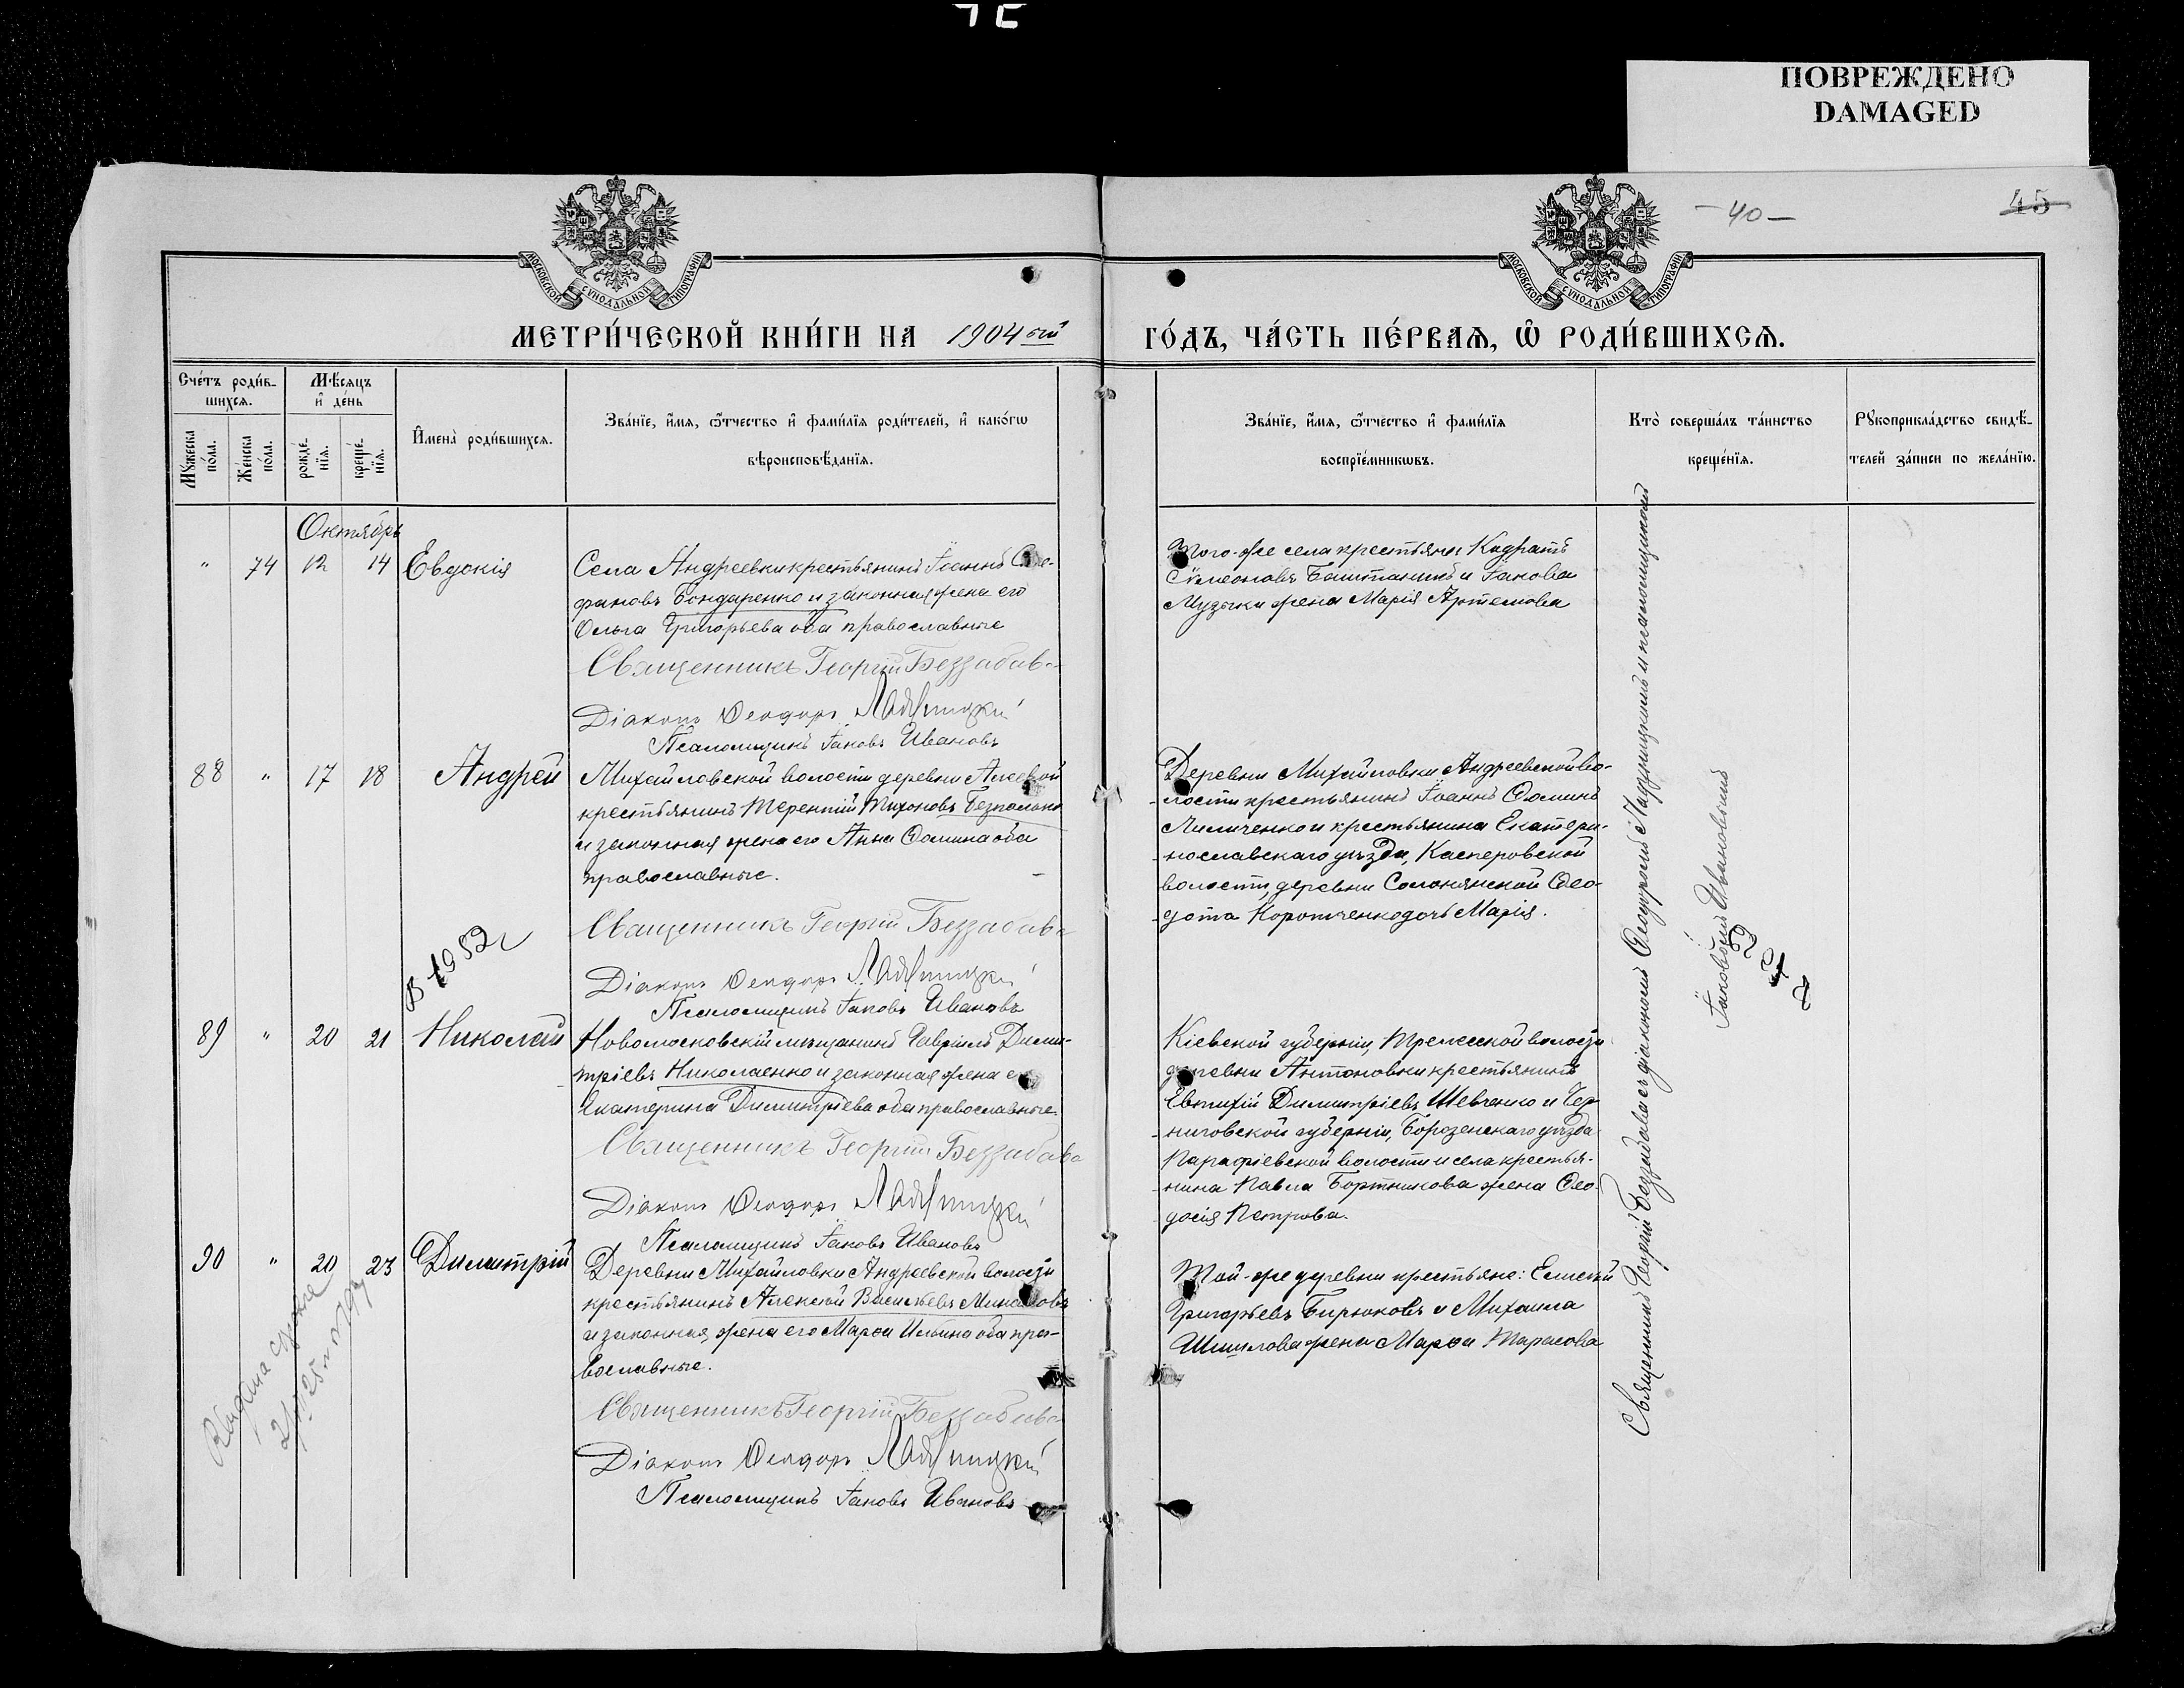 ПОВРЕЖДЕНО
DAMAGED
МОСКОВСКОЙ СѴНОДАЛЬНОЙ ТИПОГРАФІИ
МОСКОВСКОЙ СѴНОДАЛЬНОЙ ТИПОГРАФІИ
- 40 -
45
МЕТРИ́ЧЕСКОЙ КНИ́ГИ НА 1904 ый
ГО́ДЪ, ЧА́СТЬ ПЕ́РВАЯ, Ѡ РОДИ́ВШИХСЯ.
Сче́тъ роди́в-
шихся.
Мѣ́сяцъ
и҆ де́нь
Мꙋ́жеска по́ла.
Же́нска по́ла.
рожде́-
нїя.
креще́-
нїя.
И҆мена̀ роди́вшихся.
Зва́нїе, и҆́мя, ѻ҆́тчество и҆ фами́лїя роди́телей, и҆ како́гѡ
вѣроисповѣ́данїя.
Зва́нїе, и҆́мя, ѻ҆́тчество и҆ фами́лїя
воспрїе́мникѡвъ.
Кто̀ соверша́лъ та́инство
креще́нїя.
Рꙋкоприкла́дство свидѣ́-
телей за́писи по жела́нїю.
Октябрь
" 74 12 14 Евдокія
Села Андреевки крестьянинъ Іоаннъ
фановъ Бондаренко и законная жена его
Ольга Григорьева оба православные
Священникъ Георгій Беззабава
Діаконъ Ѳеодоръ
Псаломщикъ Іаковъ Ивановъ
Того-же села крестьяне Кодратъ
Сѵмеоновъ Баштанникъ и Іакова
Музыки жена Марія Артемова
88 " 17 18 Андрей
Михайловской волости деревни Алеевой
крестьянинъ Терентій Тихоновъ Безпалько
и законная жена его Анна Ѳомина оба
православные.
Священникъ Георгій Беззабава
Діаконъ Ѳеодоръ
Псаломщикъ Іаковъ Ивановъ
Деревни Михайловки Андреевской во-
лости крестьянинъ Іоаннъ Ѳоминъ
Лиличенко и крестьянина Екатери-
нославскаго уѣзда, Касперовской
волости, деревни Солонянской Ѳео-
дота Коротченко дочь Марія.
В 1952 г
89 " 20 21 Николай
Новомосковскій мѣщанинъ Гавріилъ Дими-
тріевъ Николаенко и законная жена его
Екатерина Димитріева оба православные.
Священникъ Георгій Беззабава
Діаконъ Ѳеодоръ
Псаломщикъ Іаковъ Ивановъ
Кіевской губерніи, волости
деревни Антоновки крестьянинъ
Евтихій Димитріевъ Шевченко и Чер-
ниговской губерніи, Борозенскаго уѣзда
Парафіевской волости и села крестья-
нина Павла Бортникова жена Ѳео-
досія Петрова.
90 " 20 23 Димитрій
Деревни Михайловки Андреевской волости
крестьянинъ Алексій Васильевъ
и законная жена его Марѳа Ильина оба пра-
вославные.
Священникъ Георгій Беззабава
Діаконъ Ѳеодоръ
Псаломщикъ Іаковъ Ивановъ
Той-же деревни крестьяне: Евсевій
Григорьевъ Бирюковъ и Михаила
Шишлова жена Марѳа Тарасова
Священникъ Георгій Беззабава съ діакономъ Ѳеодоромъ и псаломщикомъ
Іаковомъ Ивановскимъ